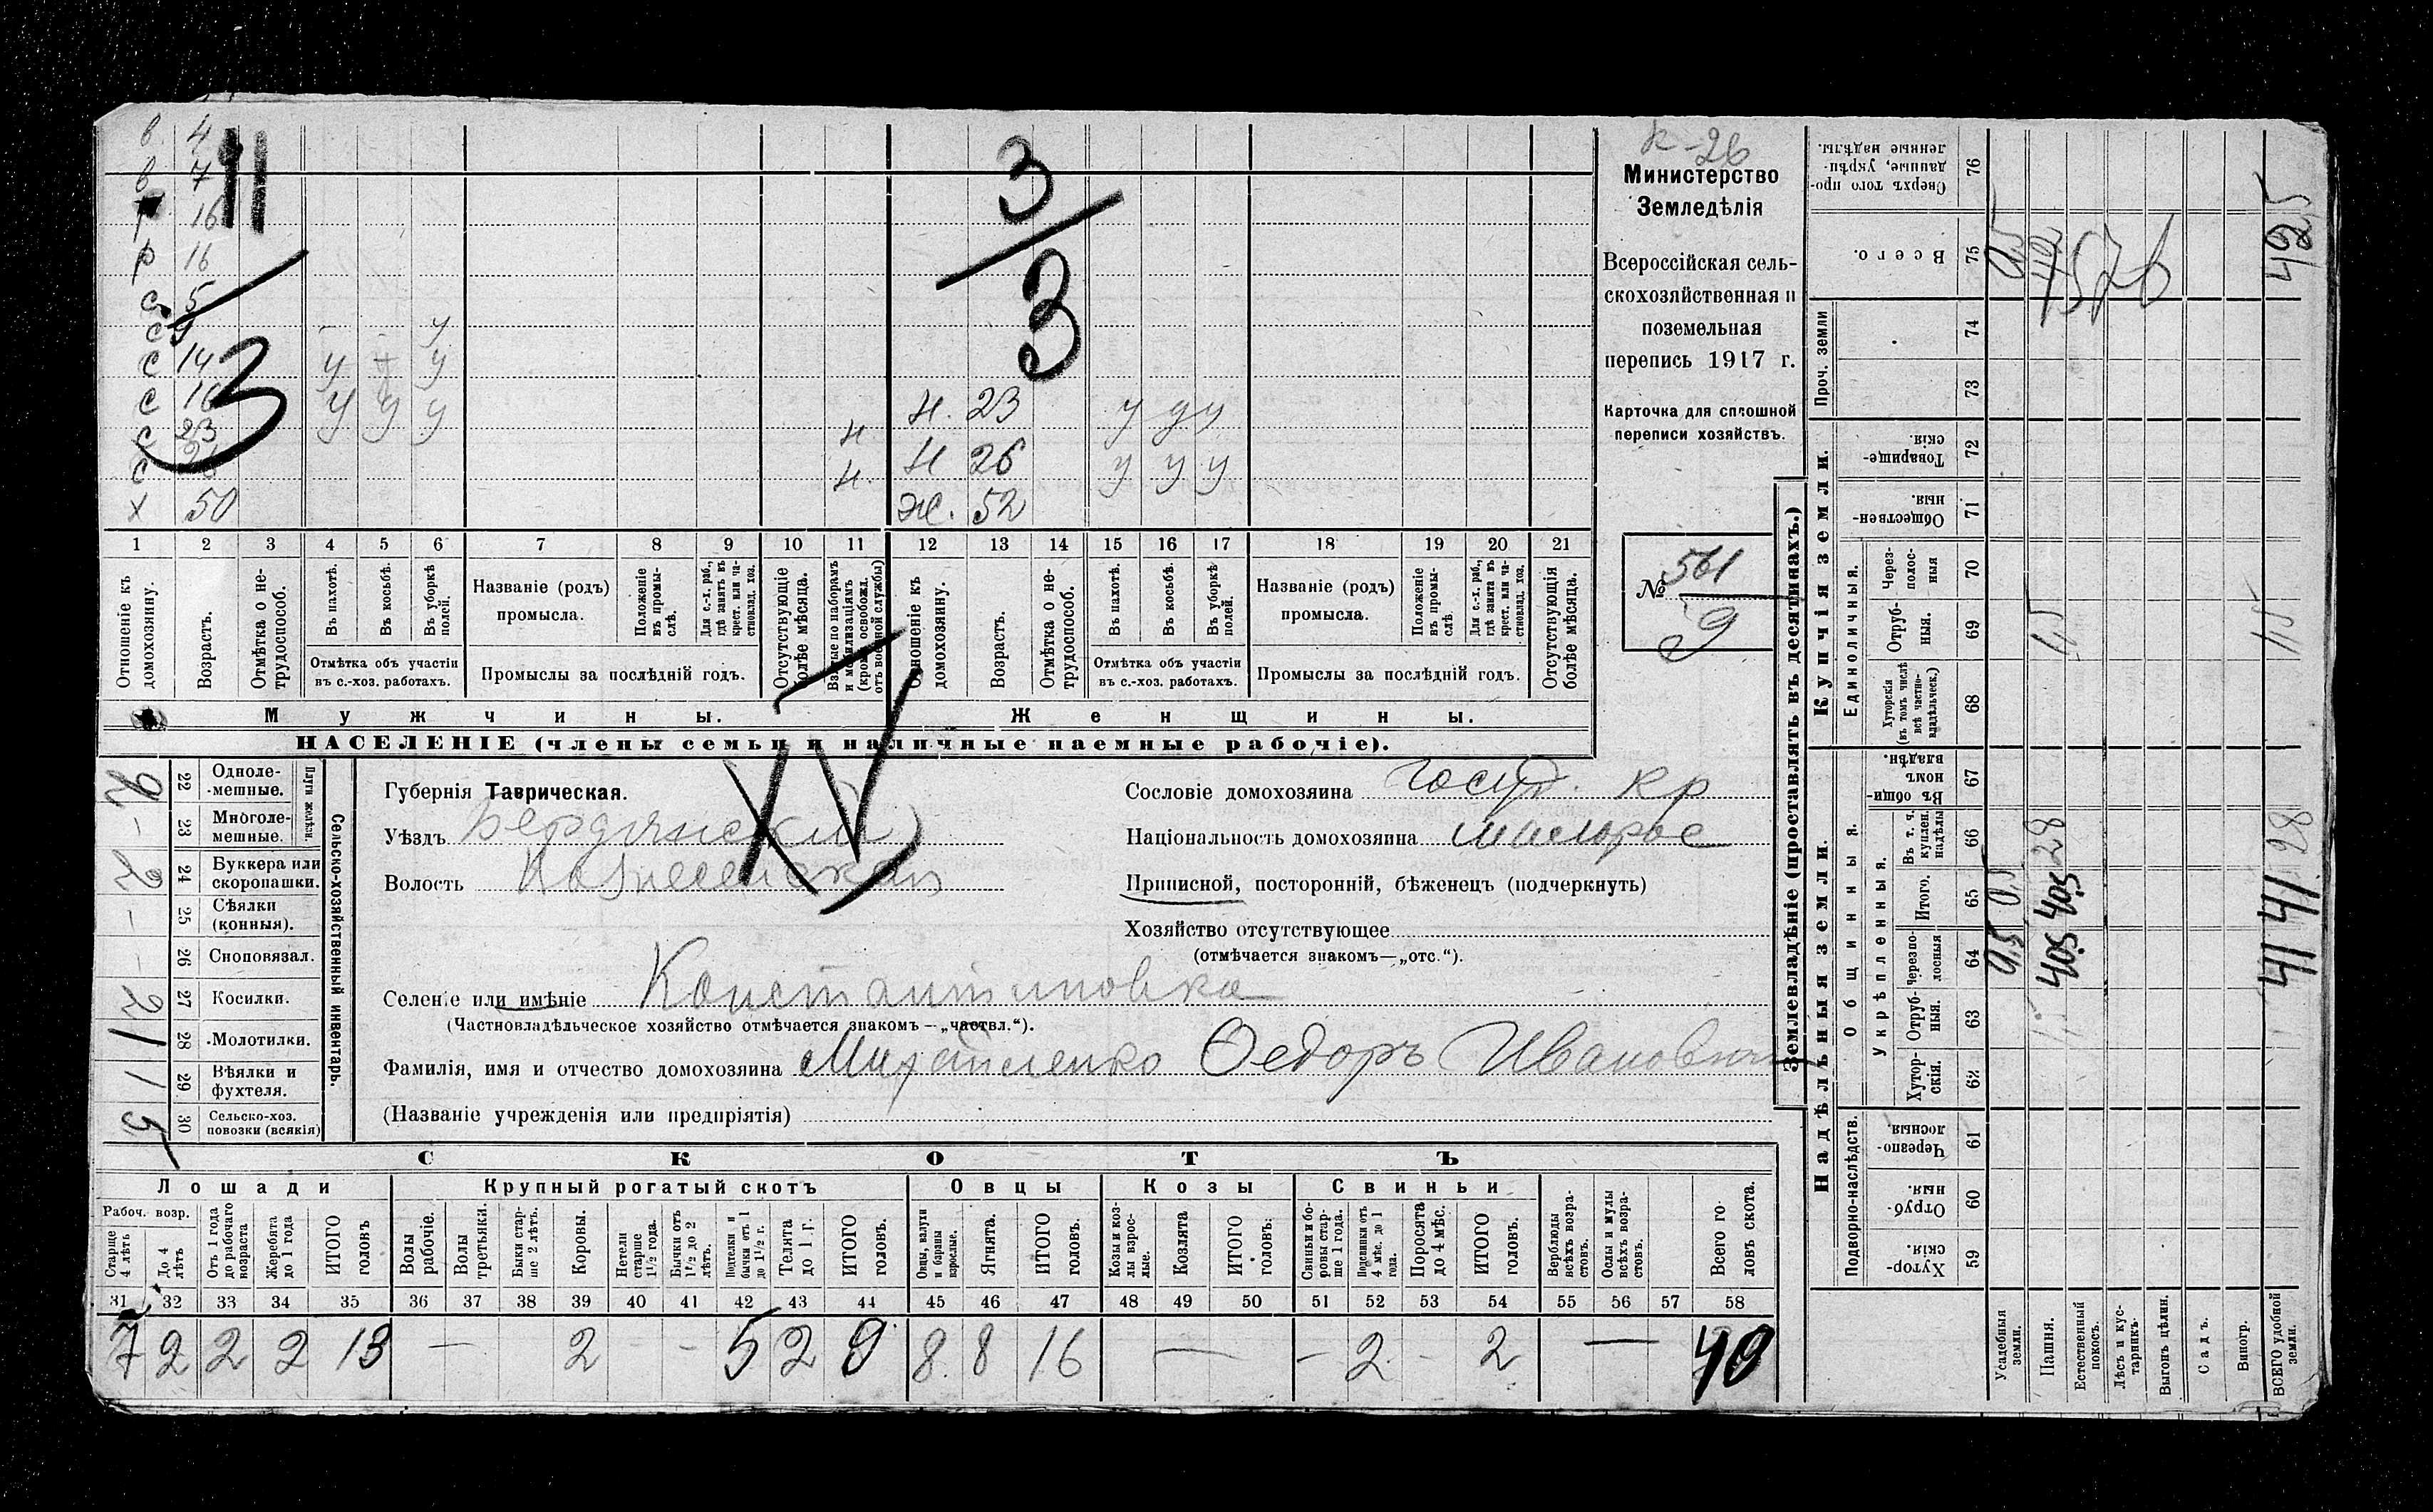 в 4
в 7
р 16
р 16
с 5
с 9
с 14 у + у
с 16 у у у
с 23 н
с 26 н.
х 50
11
3
3
3
н. 23 у у у
н 26 у у у
ж. 52
к-26
Министерство
Земледѣлія
Всероссійская сель-
скохозяйственная и
поземельная
перепись 1917 г.
Карточка для сплошной
переписи хозяйствъ.
№ 561
9
1 2 3 4 5 6 7 8 9 10 11 12 13 14 15 16 17 18 19 20 21
Отношеніе къ домохозяину.
Возрастъ.
Отмѣтка о не-трудоспособ.
Въ пахотѣ.
Въ косьбѣ.
Въ уборкѣ полей.
Отмѣтка объ участіи
въ с.-хоз. работахъ.
Названіе (родъ)
промысла.
Положеніе въ промы-слѣ.
Для с.-х. раб., гдѣ занятъ въ крест. или ча-стновлад. хоз.
Промыслы за послѣдній годъ.
Отсутствующіе болѣе мѣсяца.
Взятые по наборамъ и мобилизаціямъ (кромѣ освобожд. отъ военной службы)
Отношеніе къ домохозяину.
Возрастъ.
Отмѣтка о не-трудоспособ.
Въ пахотѣ.
Въ косьбѣ.
Въ уборкѣ полей.
Отмѣтка объ участіи
въ с.-хоз. работахъ.
Названіе (родъ)
промысла.
Положеніе въ промы-слѣ
Для с.-х. раб., гдѣ занята въ крест. или ча-стновлад. хоз.
Промыслы за послѣдній годъ.
Отсутствующія болѣе мѣсяца.
Мужчины.
Женщины.
НАСЕЛЕНІЕ (члены семьи и наличные наемные рабочіе).
Сельско-хозяйственный инвентарь.
Плуги желѣзн.
22 Одноле-мешные. 2
23 Многоле-мешные. -
24 Буккера или скоропашки. 2
25 Сѣялки (конныя). -
26 Сноповязал. -
27 Косилки. 2
28 Молотилки. 1
29 Вѣялки и фухтеля. 1
30 Сельско-хоз. повозки (всякія) 5
Губернія Таврическая.
Уѣздъ Бердянскій
Волость Вознесенская
XIV
Сословіе домохозяина госуд. кр
Національность домохозяина малорос
Приписной, посторонній, бѣженецъ (подчеркнуть)
Хозяйство отсутствующее
(отмѣчается знакомъ—„отс.“).
Селеніе или имѣніе Константиновка
(Частновладѣльческое хозяйство отмѣчается знакомъ—„частвл.“).
Фамилія, имя и отчество домохозяина Михайленко Ѳедоръ Ивановичъ
(Названіе учрежденія или предпріятія)
СКОТЪ
Лошади Крупный рогатый скотъ Овцы Козы Свиньи
Рабоч. возр.
Старше 4 лѣтъ
До 4 лѣтъ
Отъ 1 года до рабочаго возраста
Жеребята до 1 года
ИТОГО головъ
Волы рабочіе.
Волы третьяки.
Быки стар-ше 2 лѣтъ.
Коровы.
Нетели старше 1½ года.
Бычки отъ 1½ до 2 лѣтъ.
Подтелки и бычки отъ 1 до 1½ г.
Телята до 1 г.
ИТОГО головъ.
Овцы, валухи и бараны взрослые.
Ягнята.
ИТОГО головъ.
Козы и коз-лы взрос-лые.
Козлята
ИТОГО головъ.
Свиньи и бо-ровы стар-ше 1 года.
Подсвинки отъ 4 мѣс. до 1 года.
Поросята до 4 мѣс.
ИТОГО головъ.
Верблюды всѣхъ возра-стовъ.
Ослы и мулы всѣхъ возра-стовъ.
Всего го-ловъ скота.
31 32 33 34 35 36 37 38 39 40 41 42 43 44 45 46 47 48 49 50 51 52 53 54 55 56 57 58
7 2 2 2 13 — 2 - - 5 2 9 8 8 16 — - 2 - 2 — 40
Землевладѣніе (проставлять въ десятинахъ.)
Надѣльныя земли.
Купчія земли.
Проч. земли
Подворно-наслѣдств.
Общинныя.
Укрѣпленныя.
Единоличныя.
Сверхъ того про-данные, укрѣп-ленные надѣлы. 76
Всего. 75
74
73
Товарище-скія. 72
Обществен-ныя. 71
Через-полос-ныя 70
Отруб-ныя. 69
Хуторскія (въ томъ числѣ всѣ частно-владѣльческ.) 68
Въ общи-номъ владѣн. 67
Въ т. ч. куплен. надѣлы 66
Итого. 65
Черезпо-лосныя 64
Отруб-ныя. 63
Хутор-скія. 62
Черезпо-лосныя. 61
Отруб-ныя. 60
Хутор-скія. 59
Усадебныя земли.
Пашня.
Естественный покосъ.
Лѣсъ и кус-тарникъ.
Выгонъ цѣлин.
Садъ.
Виногр.
ВСЕГО удобной земли.